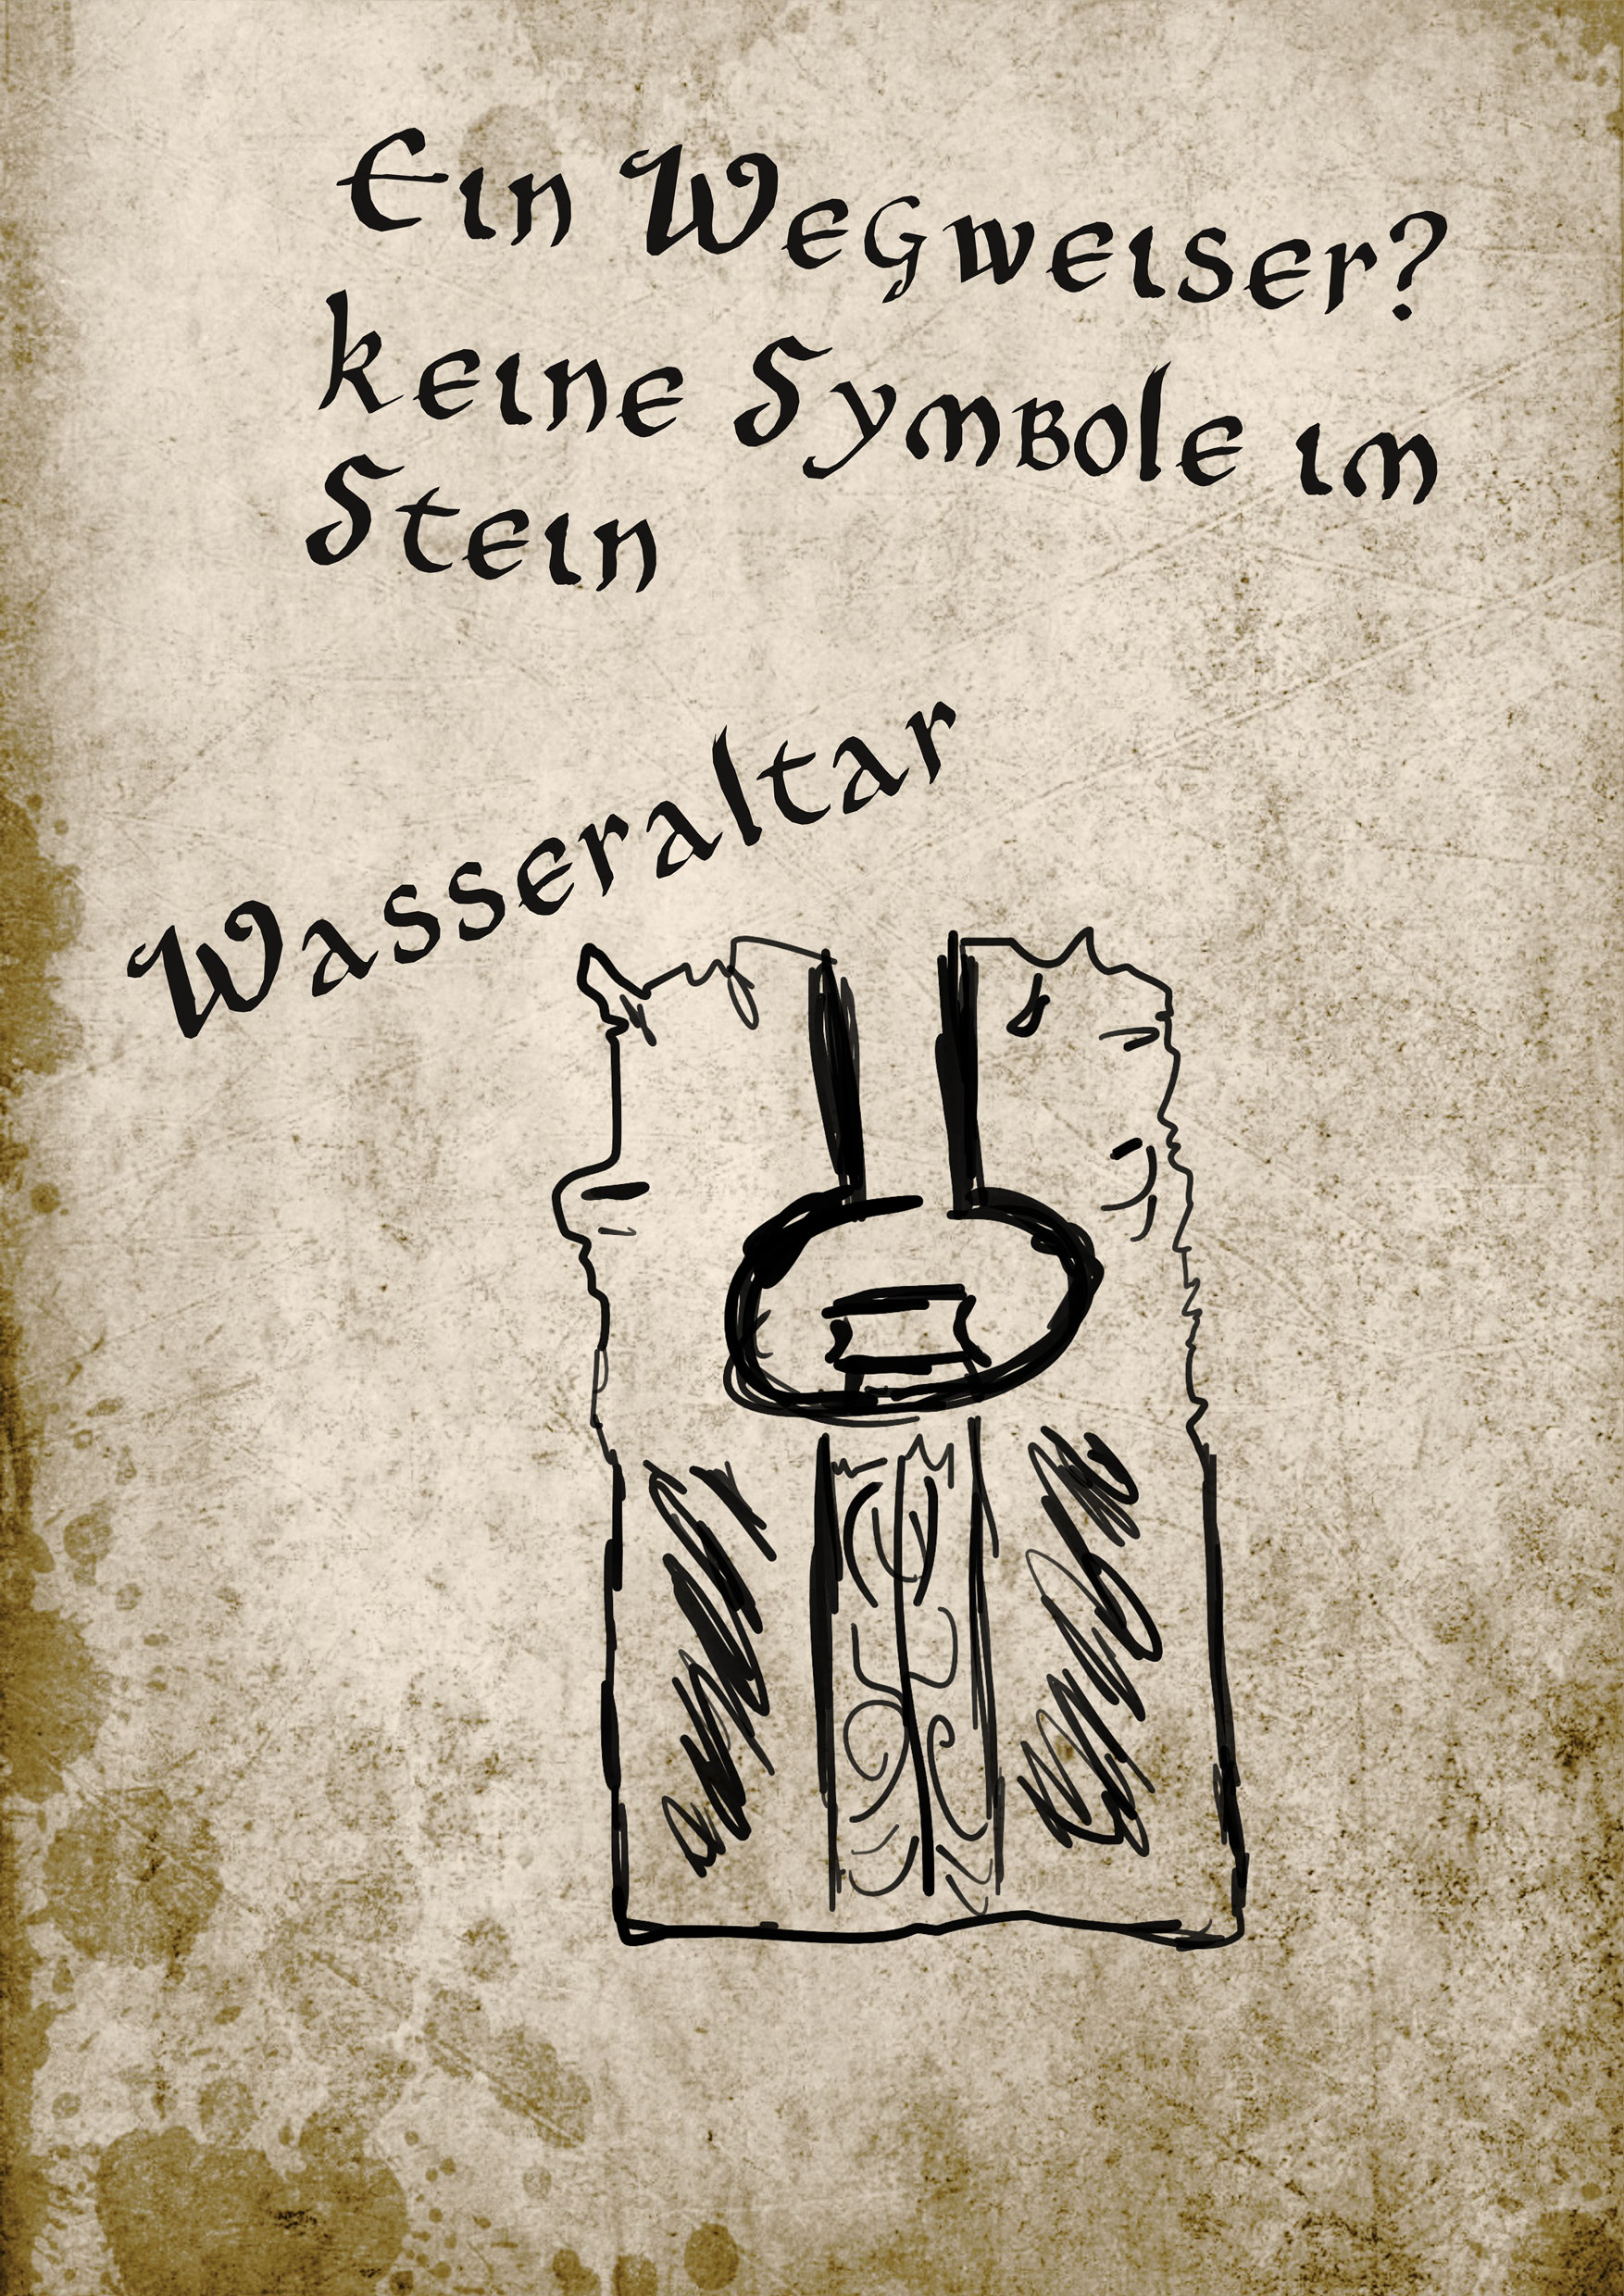 Ein Wegweiser?
keine Symbole im
Stein
Wasseraltar